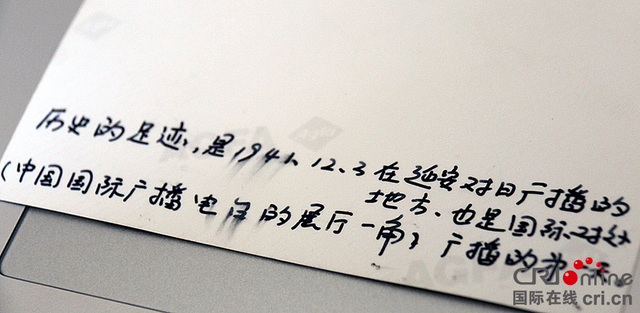 历史的足迹,是1941、12、3在延安对日广播的
地方.也是国际对外
(中国国际广播电台的展厅一角)广播的
AGFA
Agfa
CRI online
国际在线 cri.cn